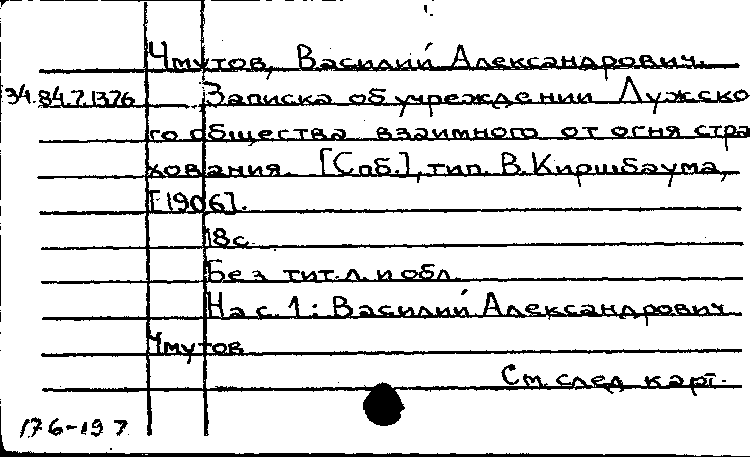 Чмутов, Василий Александрович.
34.84.7.1376 Записка об учреждении Лужско
го общества взаимного от огня стра
хования. [Спб.], тип. В. Киршбаума,
[1906].
18 с.
Без тит. л. и обл.
На с. 1: Василий Александрович
Чмутов
См. след. карт.
176-197